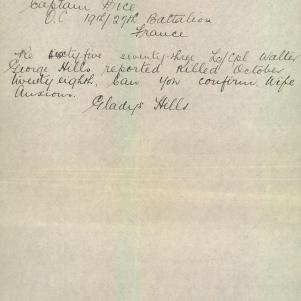 Captain Dice
O.C 19th/27th Battalion
France
Re sixty-five seventy-three Lc/Cpl Walter
George Hills reported Killed October
twenty eighth, Can you confirm. Wife
Anxious.
Gladys Hills